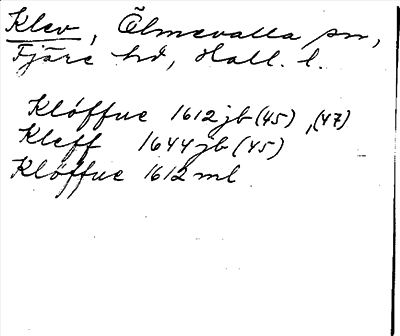 Klev, Ölmevalla sn,
Fjäre hd, Hall. l.
Klöffue 1612 jb (45), (47)
Kleff 1644 jb (45)
Klöffue 1612 ml